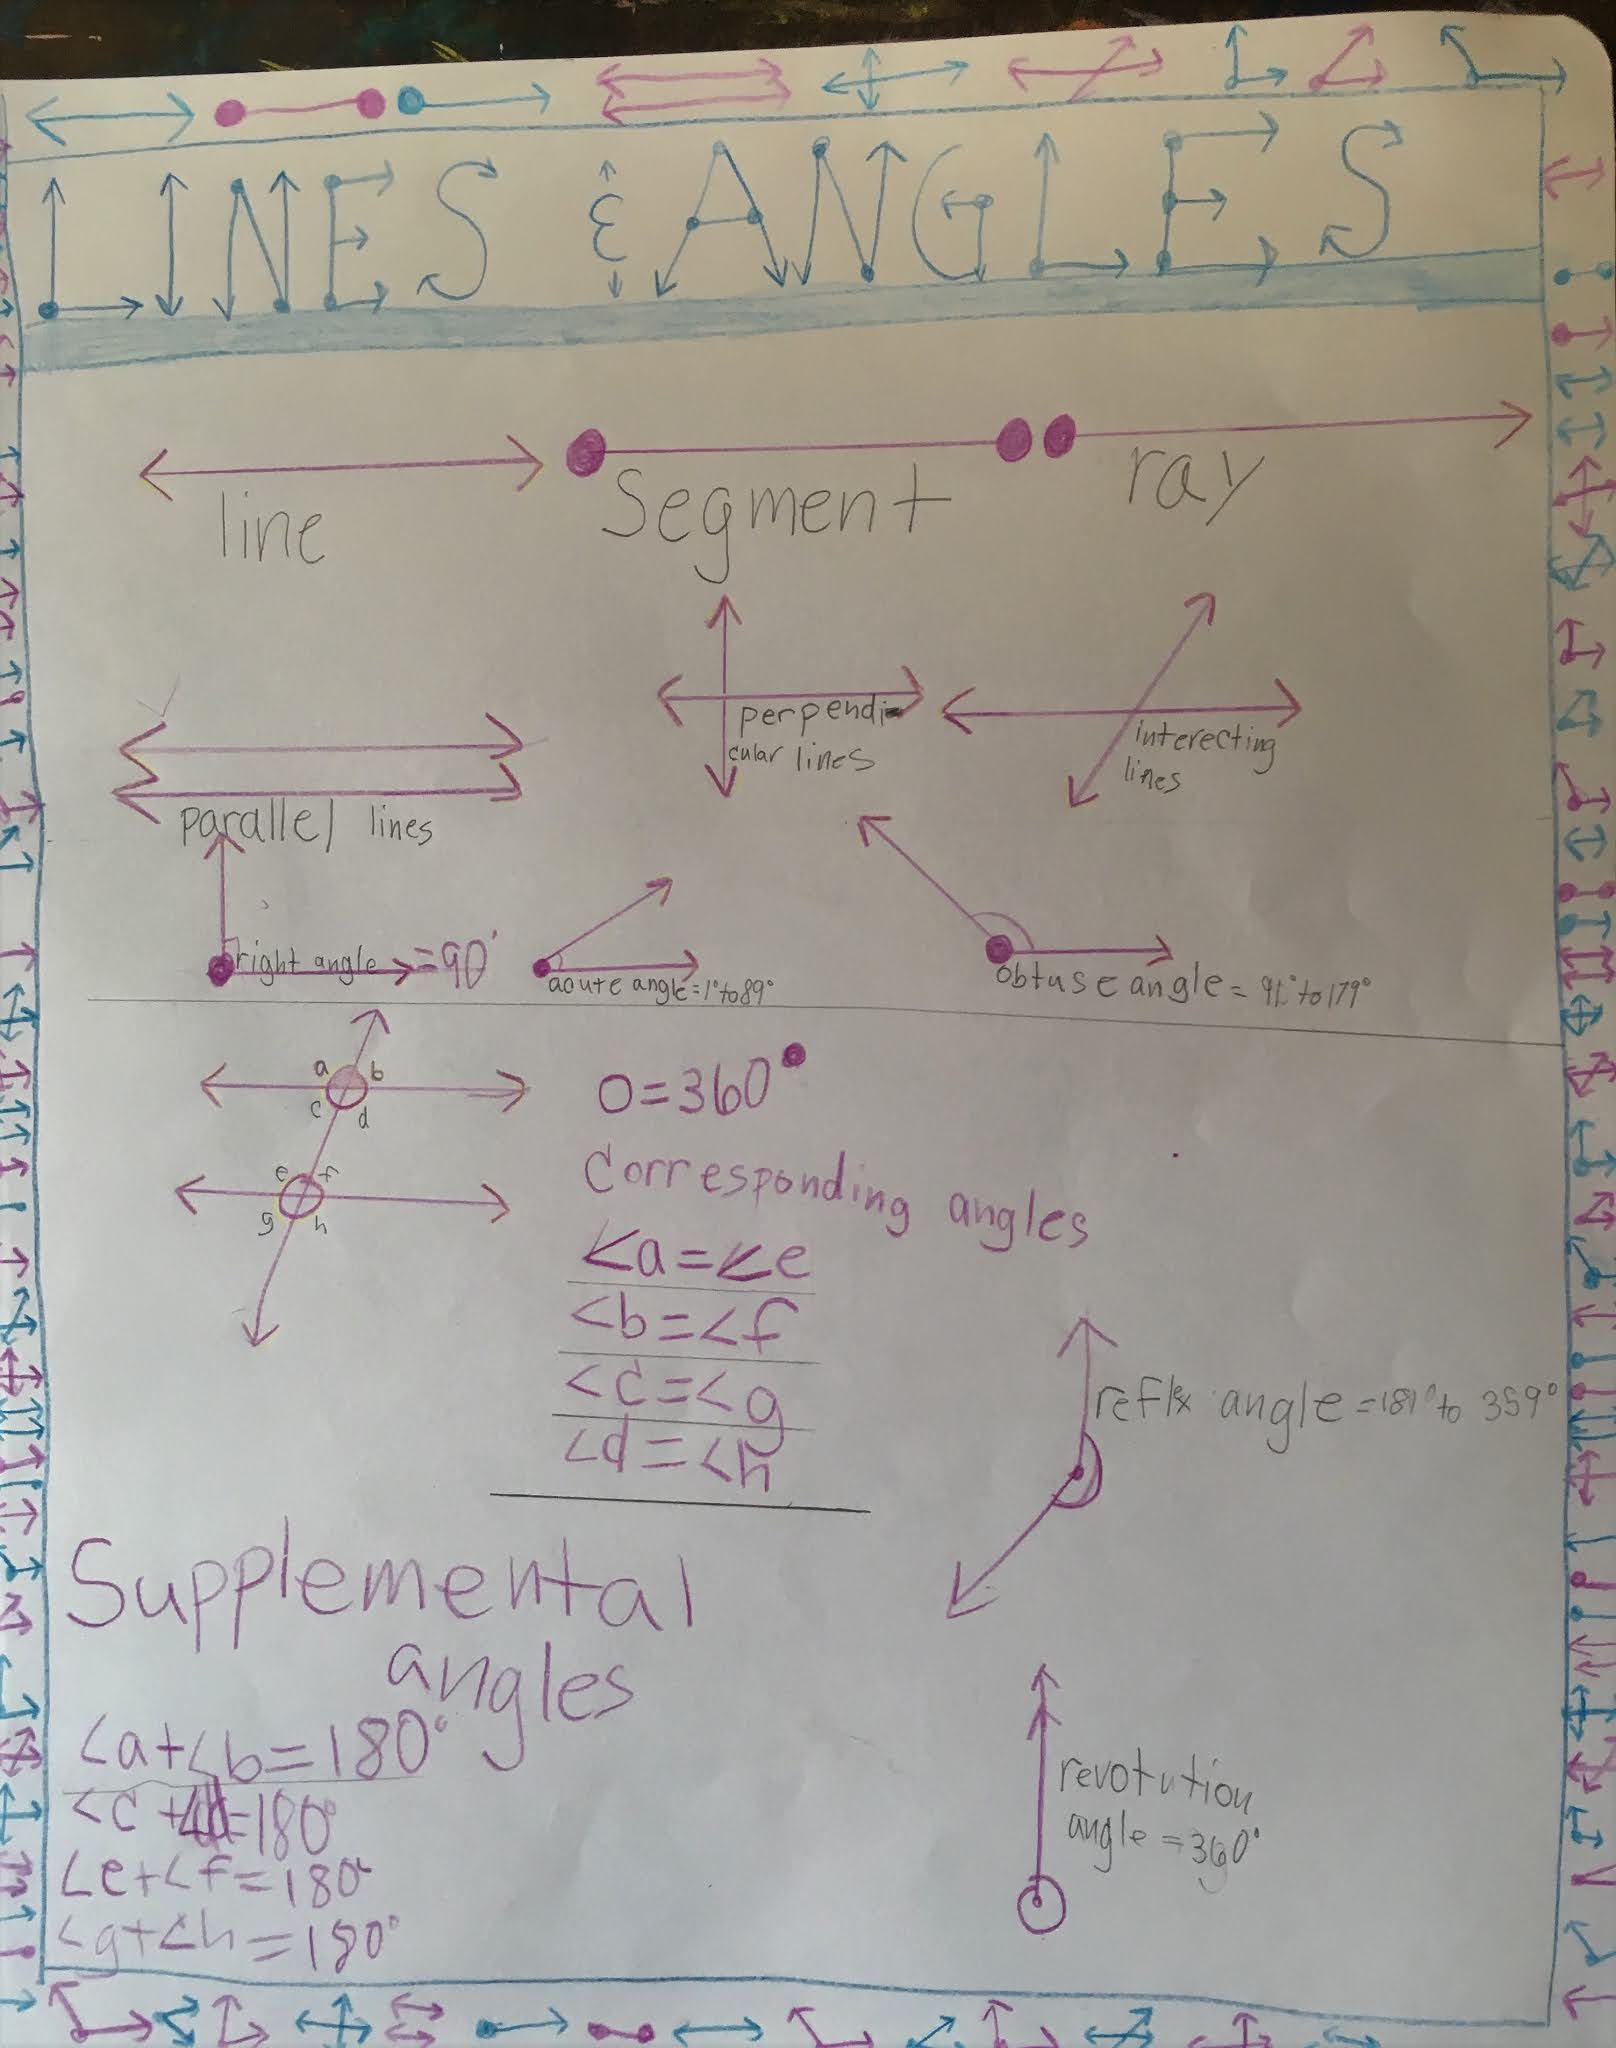 LINES & ANGLES
line
Segment
ray
perpendi-
cular lines
interecting
lines
parallel lines
right angle =90°
acute angle=1°to89°
obtuse angle = 91°to179°
a b
c d
e f
g h
O=360°
Corresponding angles
<a=<e
<b=<f
<c=<g
<d=<h
reflx angle =181°to 359°
Supplemental
angles
<a+<b=180°
<c+<d=180°
<e+<f=180°
<g+<h=180°
revotution
angle=360°